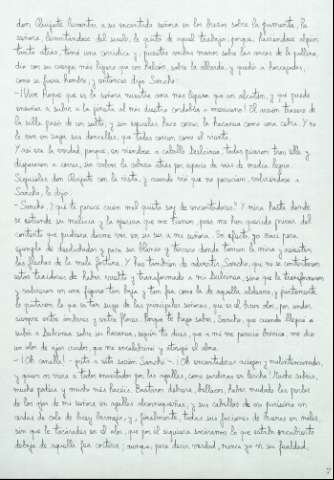 don Quijote levantar a su encantada señora en los brazos sobre la jumenta, la
señora, levantándose del suelo, le quitó de aquel trabajo, porque, haciéndose algún
tanto atrás, tomó una corridica y, puestas ambas manos sobre las ancas de la pollina,
dio con su cuerpo, más ligero que un halcón, sobre la albarda, y quedó a horcajadas,
como si fuera hombre; y entonces dijo Sancho:
-¡Vive Roque que es la señora nuestra ama más ligera que un alcotán, y que puede
enseñar a subir a la jineta al más diestro cordobés o mexicano! El arzón trasero de
la silla pasó de un salto, y sin espuelas hace correr la hacanea como una cebra. Y no
le van en zaga sus doncellas, que todas corren como el viento.
Y así era la verdad, porque, en viéndose a caballo Dulcinea, todas picaron tras ella y
dispararon a correr, sin volver la cabeza atrás por espacio de más de media legua.
Siguiólas don Quijote con la vista, y cuando vio que no parecían, volviéndose a
Sancho, le dijo:
-Sancho, ¿qué te parece cuán mal quisto soy de encantadores? Y mira hasta dónde
se extiende su malicia y la ojeriza que me tienen, pues me han querido privar del
contento que pudiera darme ver en su ser a mi señora. En efecto, yo nací para
ejemplo de desdichados y para ser blanco y terrero donde tomen la mira y asesten
las flechas de la mala fortuna. Y has también de advertir, Sancho, que no se contentaron
estos traidores de haber vuelto y transformado a mi Dulcinea, sino que la transformaron
y volvieron en una figura tan baja y tan fea como la de aquella aldeana, y juntamente
le quitaron lo que es tan suyo de las principales señoras, que es el buen olor, por andar
siempre entre ámbares y entre flores. Porque te hago saber, Sancho, que cuando llegué a
subir a Dulcinea sobre su hacanea, según tú dices, que a mí me pareció borrica, me dio
un olor de ajos crudos, que me encalabrinó y atosigó el alma.
-¡Oh canalla! -gritó a esta sazón Sancho-. ¡Oh encantadores aciagos y malintencionados,
y quién os viera a todos ensartados por las agallas, como sardinas en lercha! Mucho sabéis,
mucho podéis y mucho más hacéis. Bastaros debiera, bellacos, haber mudado las perlas
de los ojos de mi señora en agallas alcornoqueñas, y sus cabellos de oro purísimo en
cerdas de cola de buey bermejo, y, finalmente, todas sus faciones de buenas en malas,
sin que le tocárades en el olor, que por él siquiera sacáramos lo que estaba encubierto
debajo de aquella fea corteza; aunque, para decir verdad, nunca yo vi su fealdad,